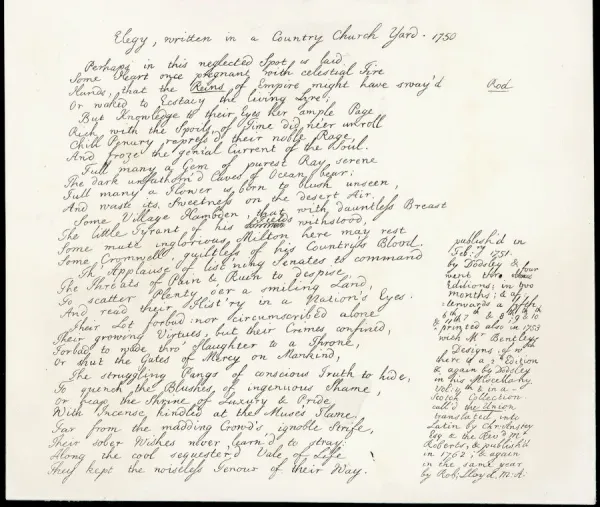 Elegy, written in a Country Church Yard. 1750
Perhaps in this neglected Spot is laid
Some Heart once pregnant with celestial Fire
Hands, that the Reins of Empire might have sway'd
Rod
Or waked to Ecstacy the living Lyre;
But Knowledge to their Eyes her ample Page
Rich with the Spoils of Time did ne'er unroll
Chill Penury repress'd their noble Rage
And froze the genial Current of the Soul.
Full many a Gem of purest Ray serene
The dark unfathom'd Caves of Ocean bear;
Full many a Flower is born to blush unseen,
And waste its Sweetness on the desert Air.
Some Village Hambden, that with dauntless Breast
The little Tyrant of his Fields withstood,
Some mute inglorious Milton here may rest
Some Cromwell, guiltless of his Countrys Blood.
Th' Applause of list'ning Senates to command
The Threats of Pain & Ruin to despise,
To scatter Plenty o'er a smiling Land,
And read their Hist'ry in a Nation's Eyes.
Their Lot forbad: nor circumscribed alone
Their growing Virtues, but their Crimes confined,
Forbad to wade thro' Slaughter to a Throne,
Or shut the Gates of Mercy on Mankind,
The struggling Pangs of conscious Truth to hide,
To quench the Blushes of ingenuous Shame,
Or heap the Shrine of Luxury & Pride
With Incense, kindled at the Muse's Flame.
Far from the madding Crowd's ignoble Strife,
Their sober Wishes never learn'd to stray:
Along the cool sequester'd Vale of Life
They kept the noiseless Tenour of their Way.
publish'd in
Feb:ry 1751.
by Dodsley &
went thro' four
Editions; in two
months; & af-
terwards a fifth,
6th 7th & 8th 9th & 10th
& 11th
printed also in 1753
with Mr Bentley's
Designs, of wch
there is a 2d Edition
& again by Dodsley
in his Miscellany,
Vol: 4th & in a
Scotch Collection
call'd the Union.
translated into
Latin by Chr: Anstey
Esq, & the Revd Mr
Roberts, & publish'd
in 1762; & again
in the same year
by Rob: Lloyd, M: A.